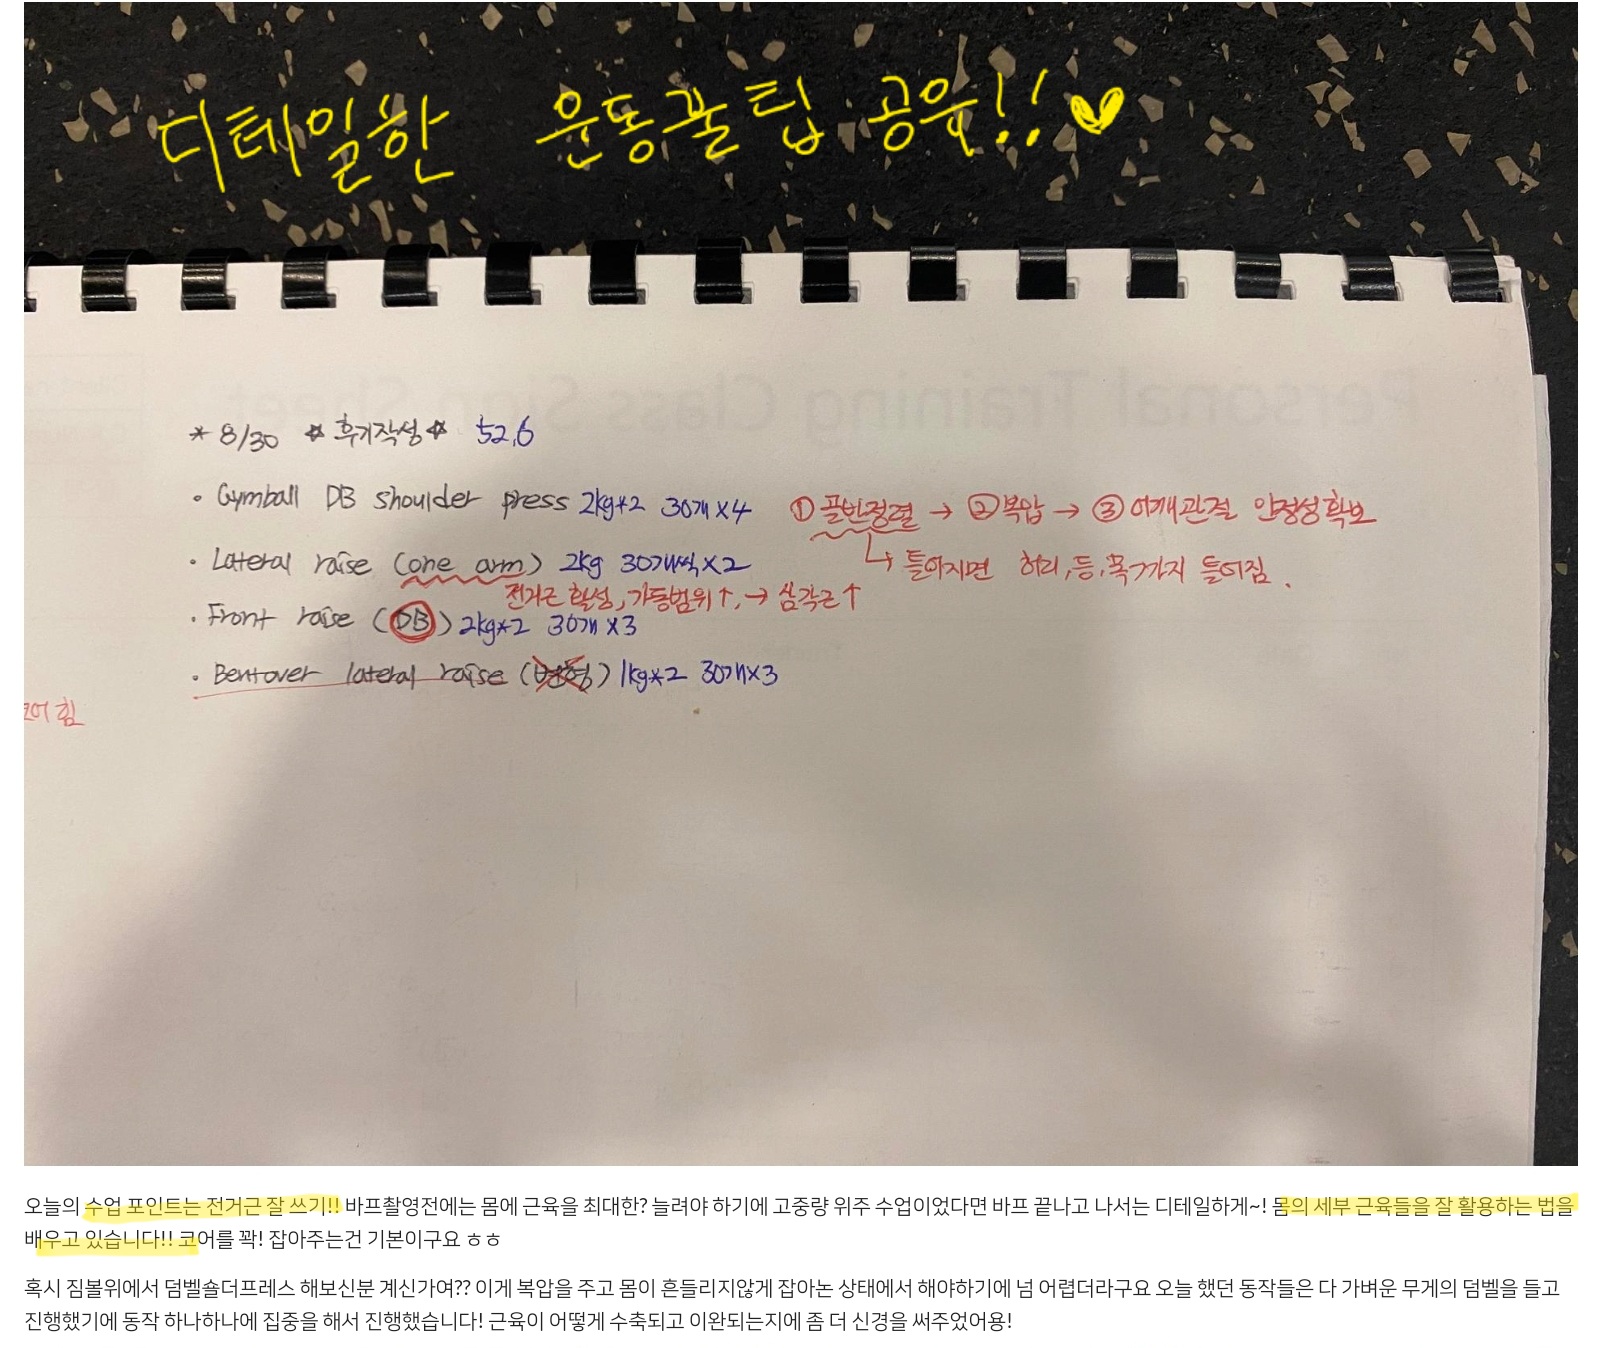 디테일한 운동꿀팁 공유!!
Personal Training Class Sign Sheet
* 8/30 ☆ 후기작성 ☆ 52.6
· Gymball DB shoulder press 2kg*2 30개 x 4 ① 골반정렬 → ② 복압 → ③ 어깨관절 안정성확보
↳ 틀어지면 허리, 등, 목까지 틀어짐.
· Lateral raise (one arm) 2kg 30개씩 x 2
전거근 활성, 가동범위↑, → 삼각근↑
· Front raise (DB) 2kg*2 30개 x 3
· Bentover lateral raise (변형) 1kg*2 30개 x 3
코어 힘
오늘의 수업 포인트는 전거근 잘 쓰기!! 바프촬영전에는 몸에 근육을 최대한? 늘려야 하기에 고중량 위주 수업이었다면 바프 끝나고 나서는 디테일하게~! 몸의 세부 근육들을 잘 활용하는 법을
배우고 있습니다!! 코어를 꽉! 잡아주는건 기본이구요 ㅎㅎ
혹시 짐볼위에서 덤벨숄더프레스 해보신분 계신가여?? 이게 복압을 주고 몸이 흔들리지않게 잡아논 상태에서 해야하기에 넘 어렵더라구요 오늘 했던 동작들은 다 가벼운 무게의 덤벨을 들고
진행했기에 동작 하나하나에 집중을 해서 진행했습니다! 근육이 어떻게 수축되고 이완되는지에 좀 더 신경을 써주었어용!